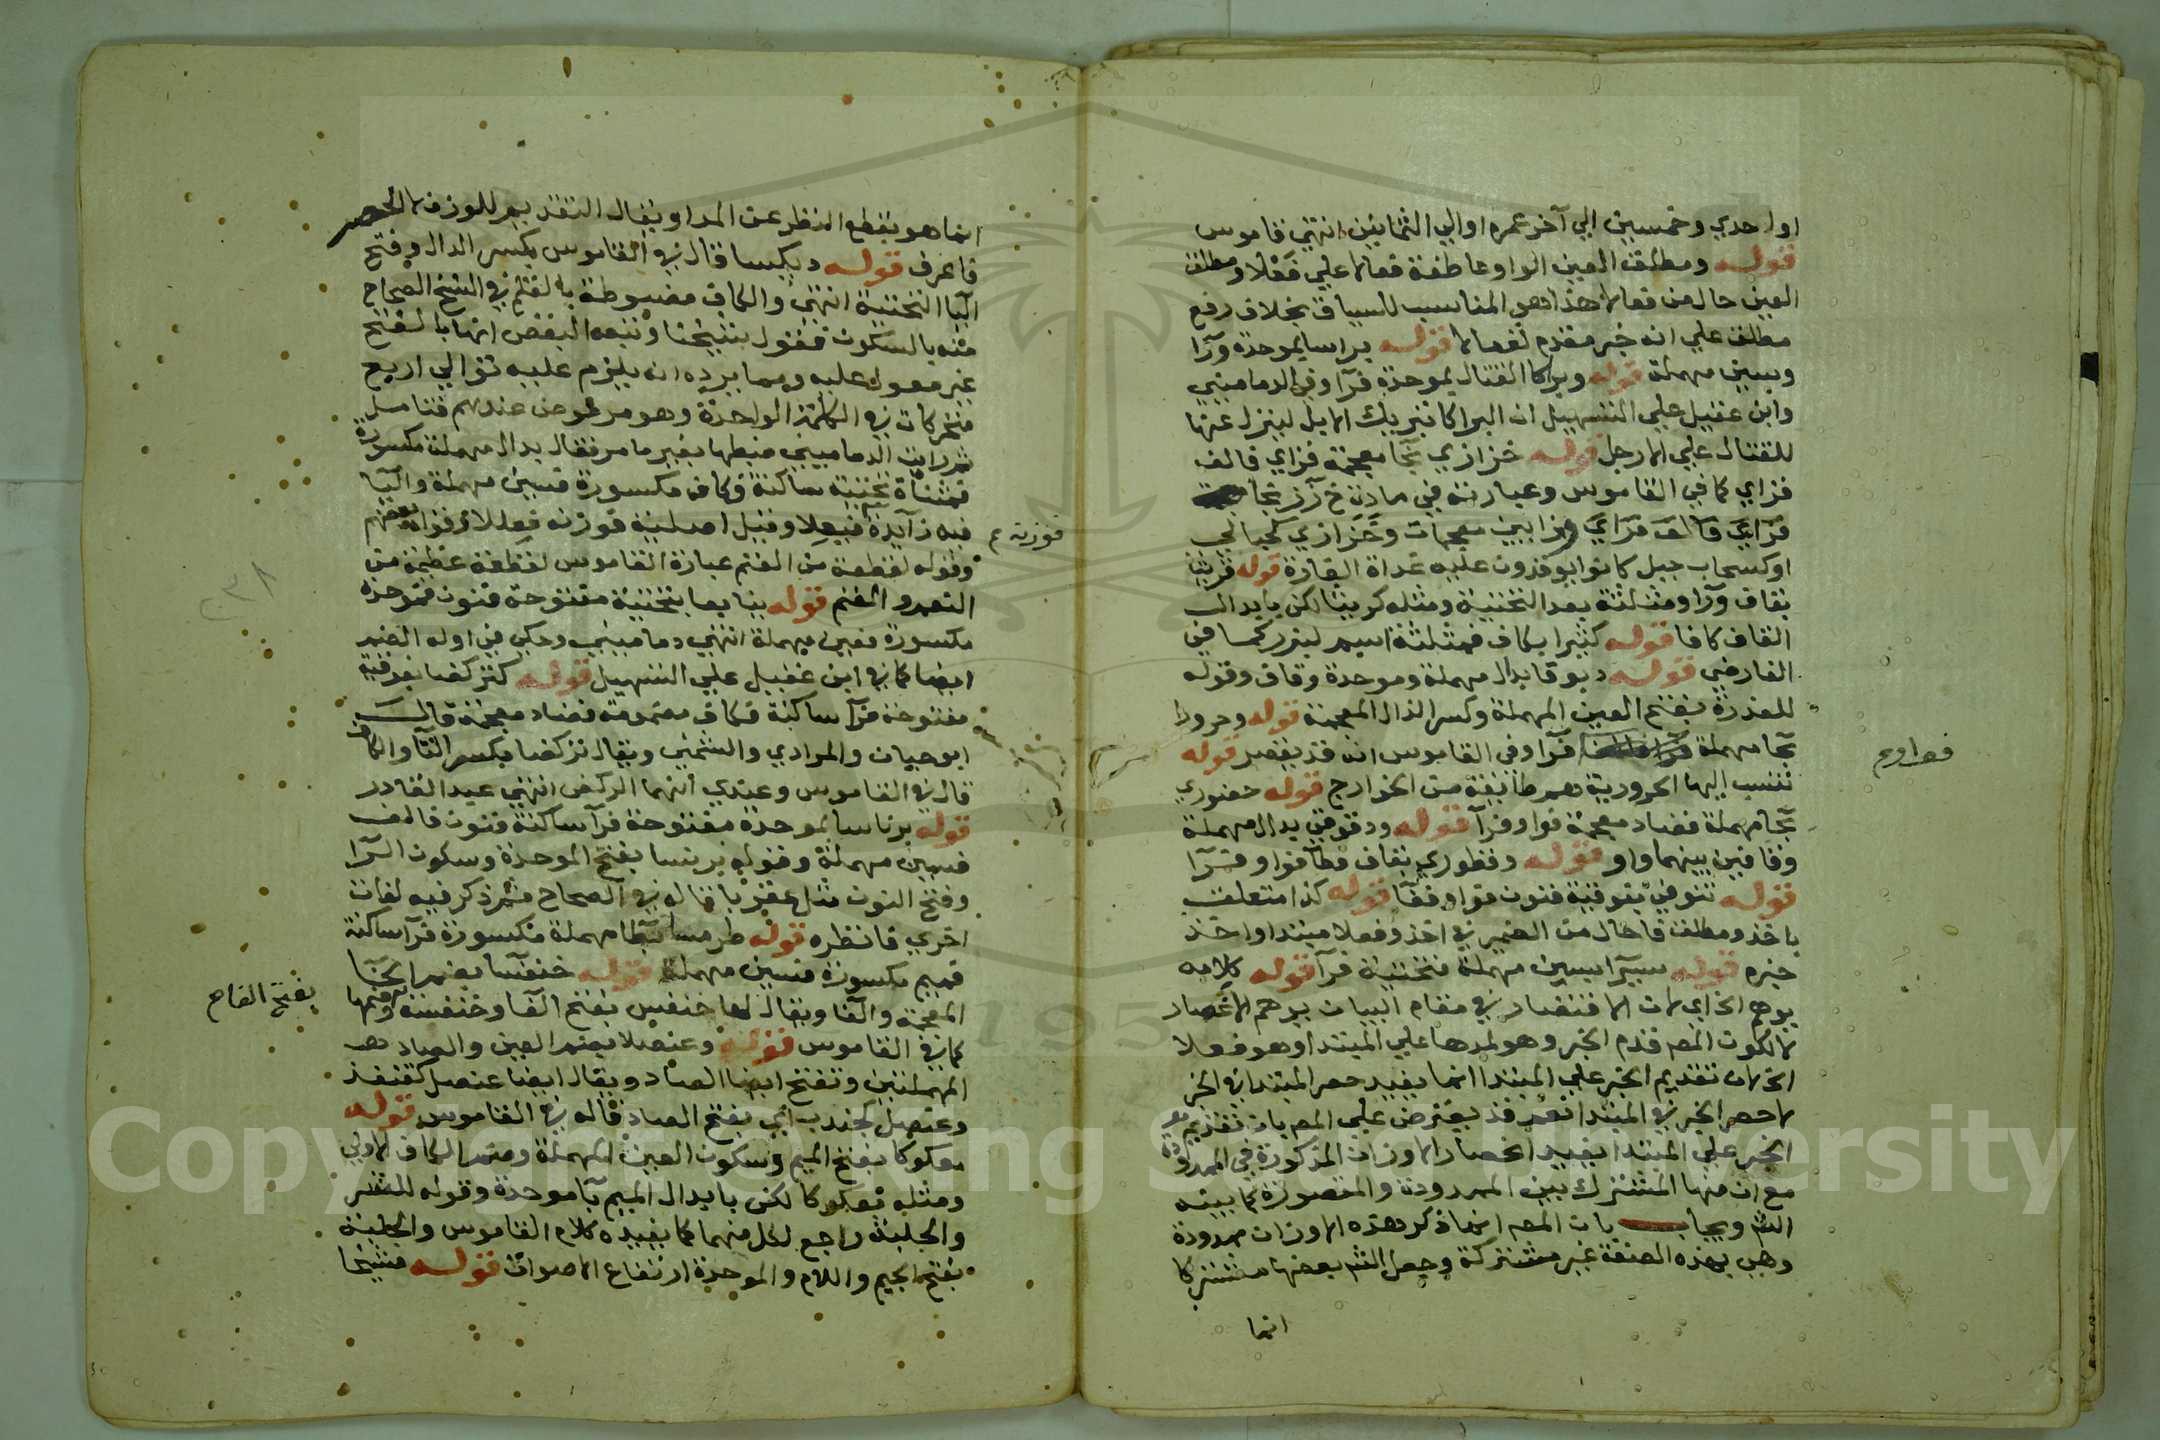 او احدي وخمسين الي آخر عمره اوالي الثمانين انتهي قاموس
قوله ومطلق العين الواو عاطفة فعالا علي فعلا ومطلق
العين حال من فعالا هذا هو المناسب للسياق بخلاف رفع
مطلق علي انه خبر مقدم لفعالا قوله براسا بموحدة ورآ
وسين مهملة قوله وبراكا القتال بموحدة فرآ وفي الدماميني
وابن عقيل علي التسهيل ان البراكا تبريك الابل لينزل عنها
للقتال علي الارجل قوله خزازي بخا معجمة فزاي فالف
فزاي كما في القاموس وعبارته في مادة خ زز بخا
فزاي فالف فزاي وخزازي كحبالي
او كسحاب جبل كانوا يوقدون عليه غداة الغارة قوله قريثا
بقاف ورآ ومثلثة بعد التحتية ومثله كريثا لكن بابدال
القاف كافا قوله كثيرا بكاف فمثلثة اسم لبزر كما في
الفارضي قوله دبوقا بدال مهملة وموحدة وقاف وقوله
للعذرة بفتح العين المهملة وكسر الذال المعجمة قوله وحرورا
بحا مهملة فرآ وفي القاموس انه قد يقصر قوله
تنسب اليها الحرورية هم طائفة من الخوارج قوله حضوري
بحا مهملة فضاد معجمة فواو فرآ قوله ودقوقي بدال مهملة
وقافين بينهما واو قوله وقطوري بقاف فطآ فواو فرآ
قوله تنوفي بفوقية فنون فواو ففا قوله كذا متعلق
باخذ ومطلق فا حال من الضمير في اخذ وفعلا مبتدا واخذ
خبره قوله سيرا بسين مهملة فتحتية فرآ قوله كلامه
يوهم الخ اي لان الاقتصار في مقام البيان يوهم الاختصار
لا لكون المص قدم الخبر وهو لمدها علي المبتدا وهو فعلا
الخ لان تقديم الخبر علي المبتدا انما يفيد حصر المبتدا في الخبر
لا حصر الخبر في المبتدا نعم قد يعترض علي المص بان تقديم
الخبر علي المبتدا يفيد انحصار الاوزان المذكورة في الممدودة
مع ان منها المشترك بين الممدودة والمقصورة كما بينه
الش ويجاب بان المص انما ذكر هذه الاوزان ممدودة
وهي بهذه الصفة غير مشتركة وجعل الش بعضها مشتركا
انما
فطاوح
انما هو بقطع النظر عن المد او يقال التقديم للوزن لا للحصر
فاعرف قوله ديكسا قال في القاموس بكسر الدال وفتح
اليا التحتية انتهي والكاف مضبوطة بالقلم في النسخ الصحاح
منه بالسكون فقول شيخنا وتبعه البعض انها بالفتح
غير معول عليه ومما يرده انه يلزم عليه توالي اربع
متحركات في الكلمة الواحدة وهو مرفوض عندهم فتامل
ثم رايت الدماميني ضبطها بغير ما مر فقال بدال مهملة مكسورة
فمثناة تحتية ساكنة وكاف مكسورة فسين مهملة واليا
فيه زايدة فيعلا وقيل اصلية فوزنه فعللا وفواه بعضهم
وقوله لقطعة من الغنم عبارة القاموس لقطعة عظيمة من
النعم والغنم قوله ينابعا بتحتية مفتوحة فنون فموحدة
مكسورة فعين مهملة انتهي دماميني وحكي في اوله الضم
ايضا كما في ابن عقيل علي التسهيل قوله كتركضا بفوقية
مفتوحة فرآ ساكنة فكاف مضمومة فضاد معجمة قال
ابو حيان والمرادي والشمني ويقال تركضا بكسر التا والكاف
قال في القاموس وعندي انهما الركض انتهي عبد القادر
قوله برناسا بموحدة مفتوحة فرآ ساكنة فنون فالف
فسين مهملة وقوله برنسا بفتح الموحدة وسكون الرا
وفتح النون مثل عقربا قاله في الصحاح ثم ذكر فيه لغات
اخري فانظره قوله طرمسا بطا مهملة مكسورة فرآ ساكنة
فميم مكسورة فسين مهملة قوله خنفسا بضم الخا
المعجمة والفا ويقال لها خنفس بفتح الفا وخنفسة وضمها
كما في القاموس قوله وعنصلا بضم العين والصاد
المهملتين وتفتح ايضا الصاد ويقال ايضا عنصل كقنفذ
وعنصل كجندب اي بفتح الصاد قاله في القاموس قوله
معكوكا بفتح الميم وسكون العين المهملة وضم الكاف الاولي
ومثله بعكوكا لكن بابدال الميم بآ موحدة وقوله للشر
والجلبة راجع لكل منهما كما يفيده كلام القاموس والجلبة
بفتح الجيم واللام والموحدة ارتفاع الاصوات قوله مشيخا
فوزنه ع
بفتح الفاح
Copyright © King Saud University